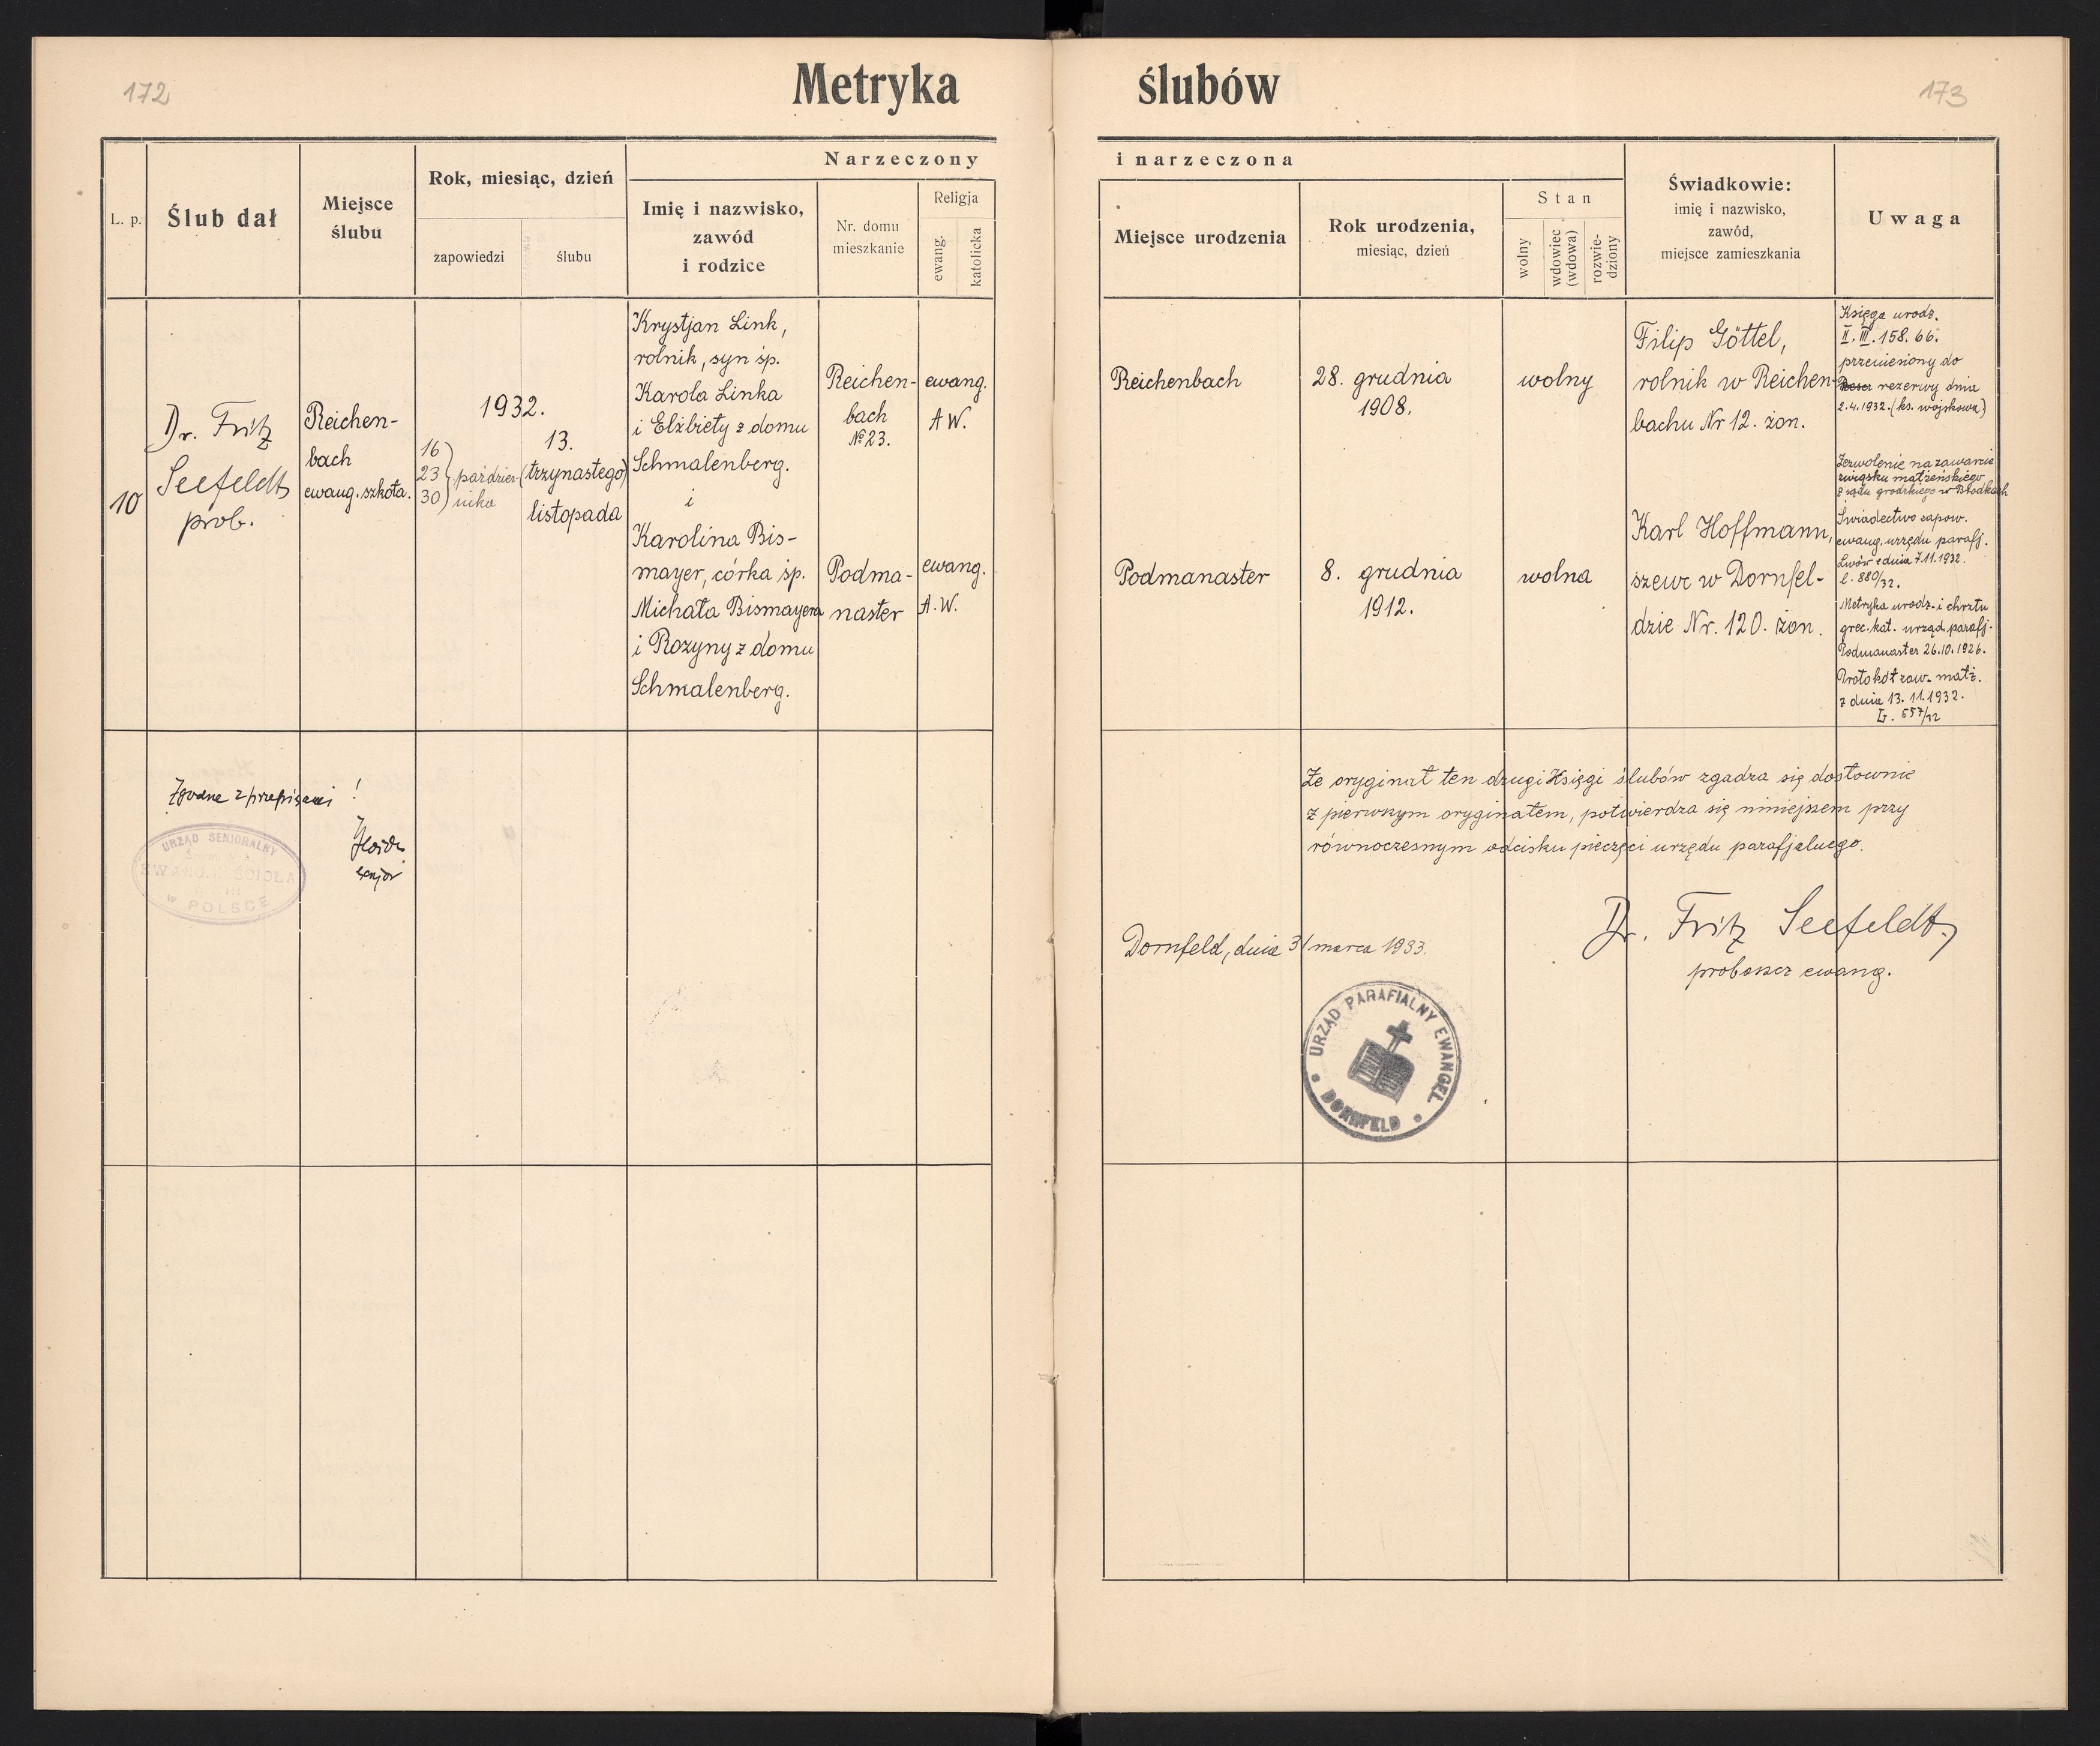 172
Metryka
ślubów
173
L. p.
Ślub dał
Miejsce
ślubu
Rok, miesiąc, dzień
zapowiedzi
ślubu
Narzeczony
Imię i nazwisko,
zawód
i rodzice
Nr. domu
mieszkanie
Religja
ewang.
katolicka
i narzeczona
Miejsce urodzenia
Rok urodzenia,
miesiąc, dzień
Stan
wolny
wdowiec
(wdowa)
rozwie-
dziony
Świadkowie:
imię i nazwisko,
zawód,
miejsce zamieszkania
Uwaga
10
Dr. Fritz
Seefeldt
prob.
Reichen-
bach
ewang. szkoła.
1932.
16
23
30
paździer-
nika
13.
(trzynastego)
listopada
Krystjan Link,
rolnik, syn śp.
Karola Linka
i Elżbiety z domu
Schmalenberg.
i
Karolina Bis-
mayer, córka śp.
Michała Bismayera
i Rozyny z domu
Schmalenberg.
Reichen-
bach
№ 23.
Podma-
naster
ewang.
A W.
ewang.
A. W.
Reichenbach
Podmanaster
28. grudnia
1908.
8. grudnia
1912.
wolny
wolna
Filip Göttel,
rolnik w Reichen-
bachu Nr 12. żon.
Karl Hoffmann,
szewc w Dornfel-
dzie Nr. 120. żon.
Księga urodz.
II. III. 158. 66.
przeniesiony do
rezerwy dnia
2.4.1932. (ks. wojskowa)
Zezwolenie na zawarcie
związku małżeńskiego
z sądu grodzkiego w
Świadectwo zapow.
ewang. urzędu parafj.
Lwów z dnia 7.11.1932.
l. 880/32.
Metryka urodz. i chrztu
grec. kat. urząd. parafj.
Podmanaster 26.10.1926.
Protokół zaw. małż.
z dnia 13. 11. 1932.
L. 557/32
Zgodne z przepisami !
senjor
URZĄD SENIORALNY
EWANG. KOŚCIOŁA
w POLSCE
Że oryginał ten drugi Księgi ślubów zgadza się dosłownie
z pierwszym oryginałem, potwierdza się niniejszem przy
równoczesnym odcisku pieczęci urzędu parafjalnego.
Dornfeld, dnia 31 marca 1933.
Dr. Fritz Seefeldt
proboszcz ewang.
URZĄD PARAFIALNY EWANGEL.
DORNFELD